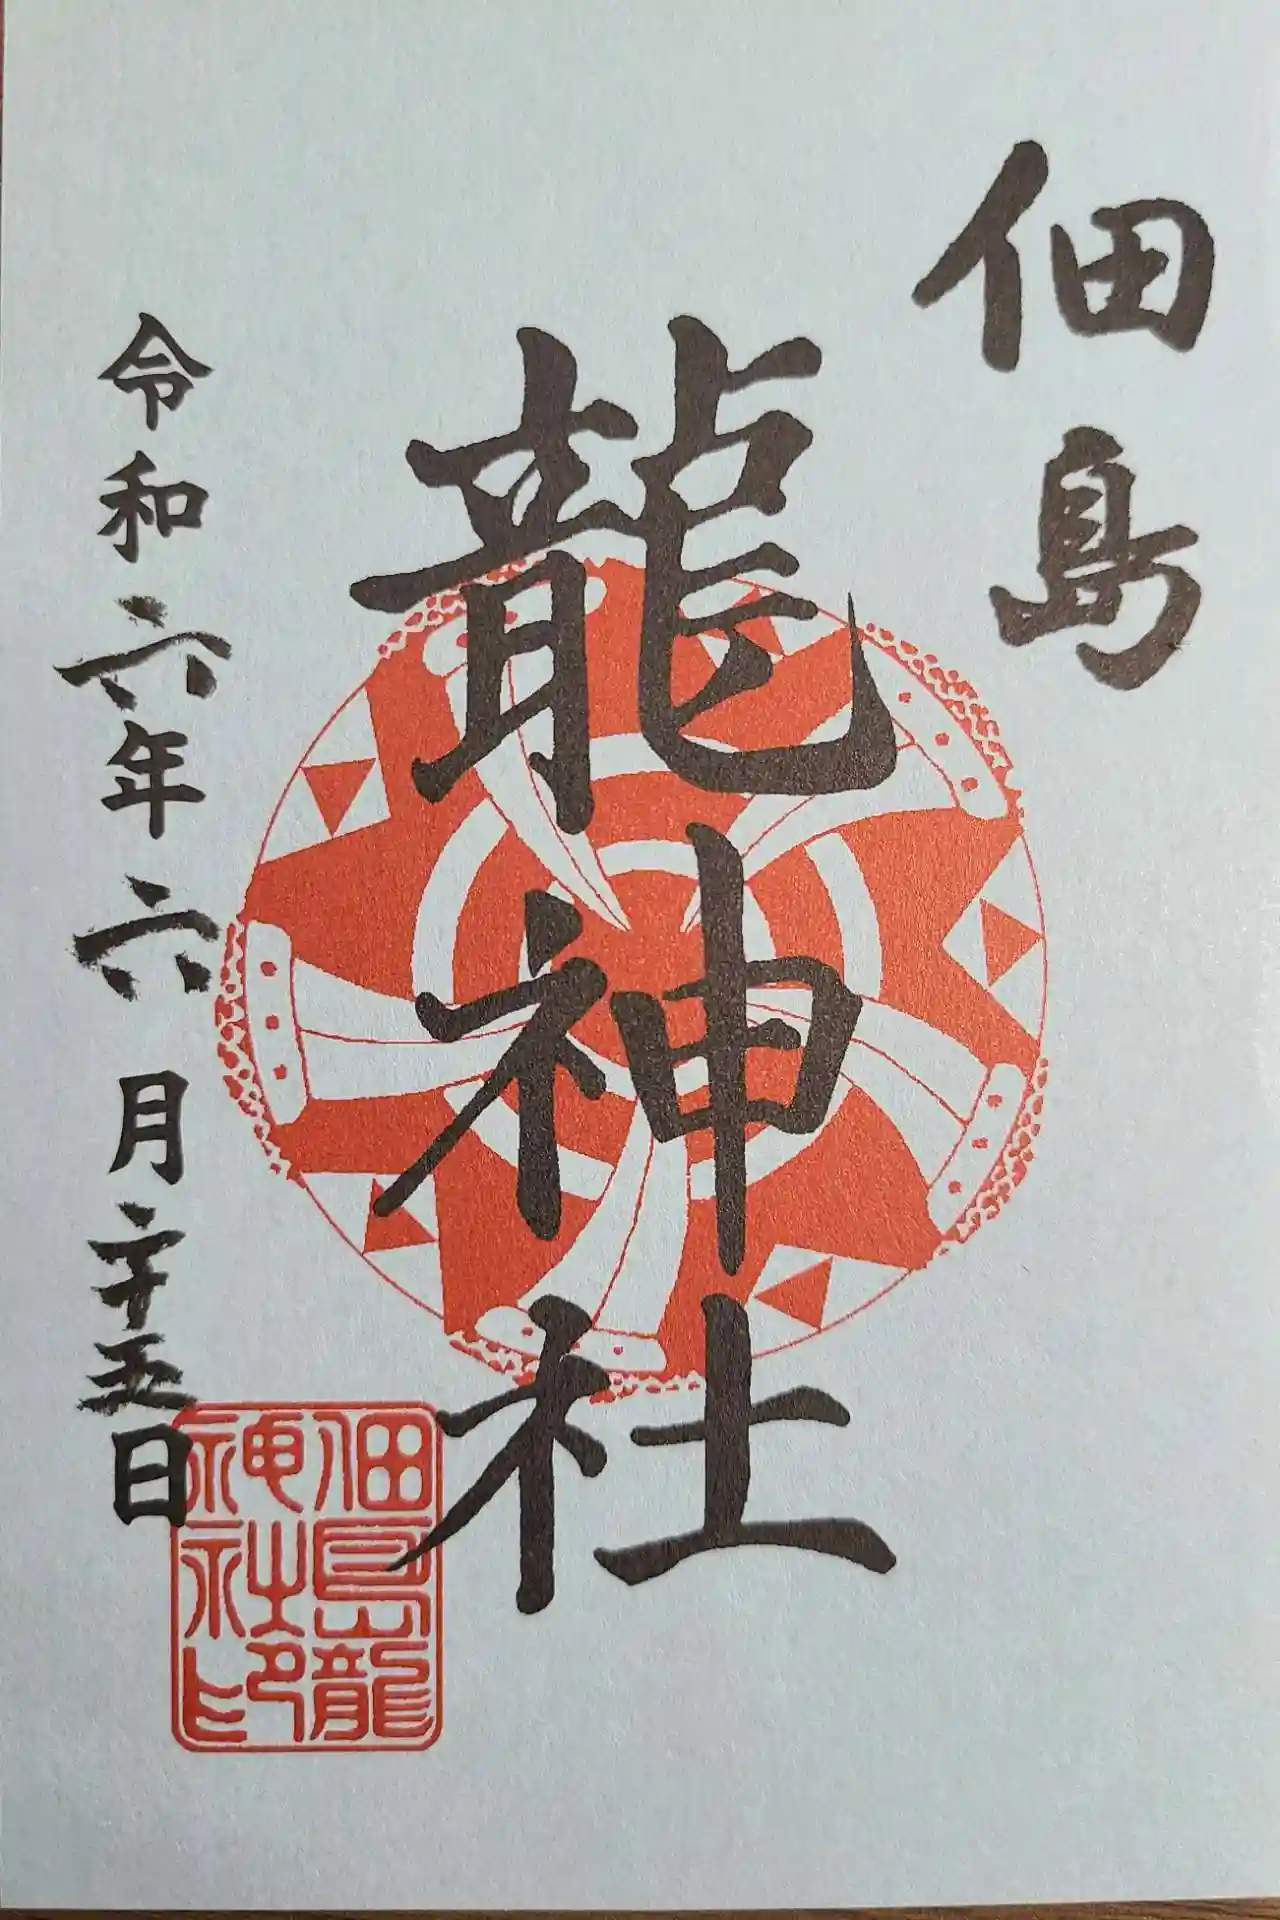 佃島
龍神社
令和六年六月二十五日
佃島龍
神社印